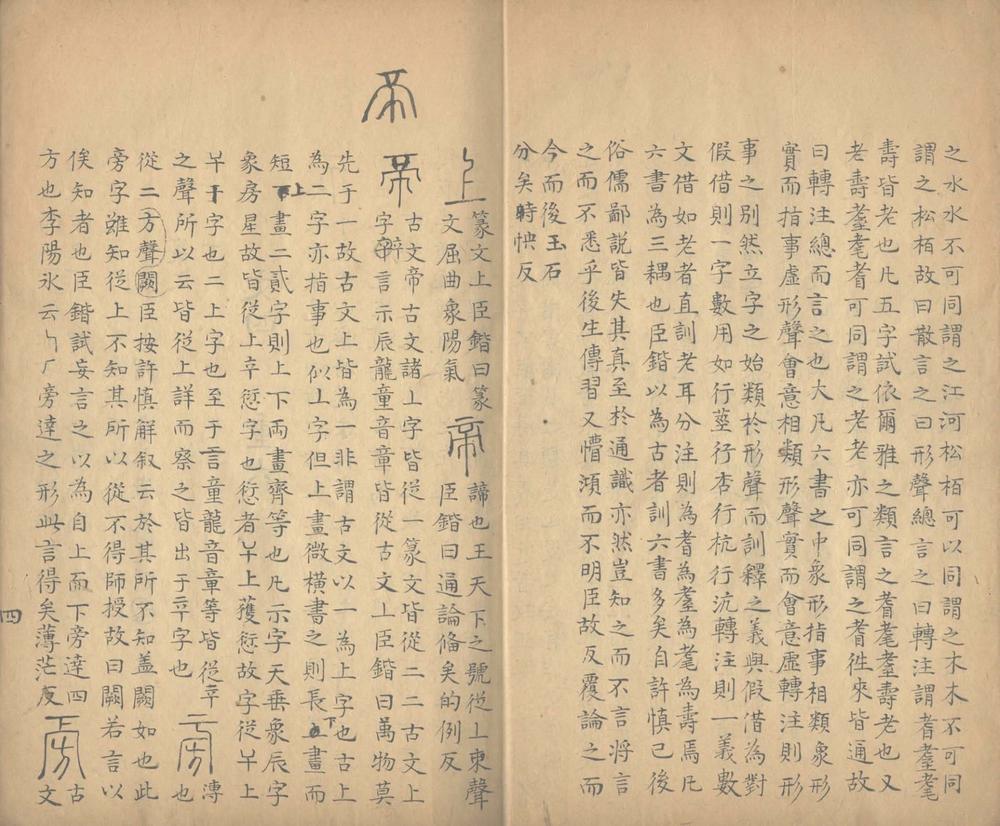 之水水不可同謂之江河松栢可以同謂之木木不可同
謂之松栢故曰散言之曰形聲總言之曰轉注謂耆耋耄
壽皆老也凡五字試依爾雅之類言之耆耄耋壽老也又
老壽耋耄耆可同謂之老老亦可同謂之耆徃來皆通故
曰轉注總而言之也大凡六書之中象形指事相類象形
實而指事虛形聲會意相類形聲實而會意虛轉注則形
事之別然立字之始類於形聲而訓釋之義與假借為對
假借則一字數用如行莖行杏行杭行沆轉注則一義數
文借如老者直訓老耳分注則為耆為耋為耄為壽焉凡
六書為三耦也臣鍇以為古者訓六書多矣自許慎已後
俗儒鄙說皆失其真至於通識亦然豈知之而不言将言
之而不悉乎後生傳習又懵澒而不明臣故反覆論之而
今而後玉石
分矣特怏反
篆文上臣鍇曰篆
文屈曲象陽氣
帝 諦也王天下之號從丄朿聲
臣鍇曰通論俻矣的例反
帝 帝 古文帝古文諸丄字皆從一篆文皆從二二古文上
字䇂言示辰龍童音章皆從古文上臣鍇曰萬物莫
先于一故古文上皆為一非謂古文以一為上字也古上
為二字亦指事也似丄字但上畫微橫書之則長上畫而
短下畫二貳字則上下兩畫齊等也凡示字天垂象辰字
象房星故皆從上䇂愆字也愆者干上獲愆故字從干上
干字也二上字也至于言童龍音章等皆從䇂
之聲所以云皆從上詳而察之皆出于䇂字也 旁 溥也
從二方聲闕臣按許慎解叙云於其所不知盖闕如也此
旁字雖知從上不知其所以從不得師授故曰闕若言以
俟知者也臣鍇試妄言之以為自上而下旁達四 古
方也李陽氷云𠃑𠂆旁達之形此言得矣薄茫反 旁 文
四